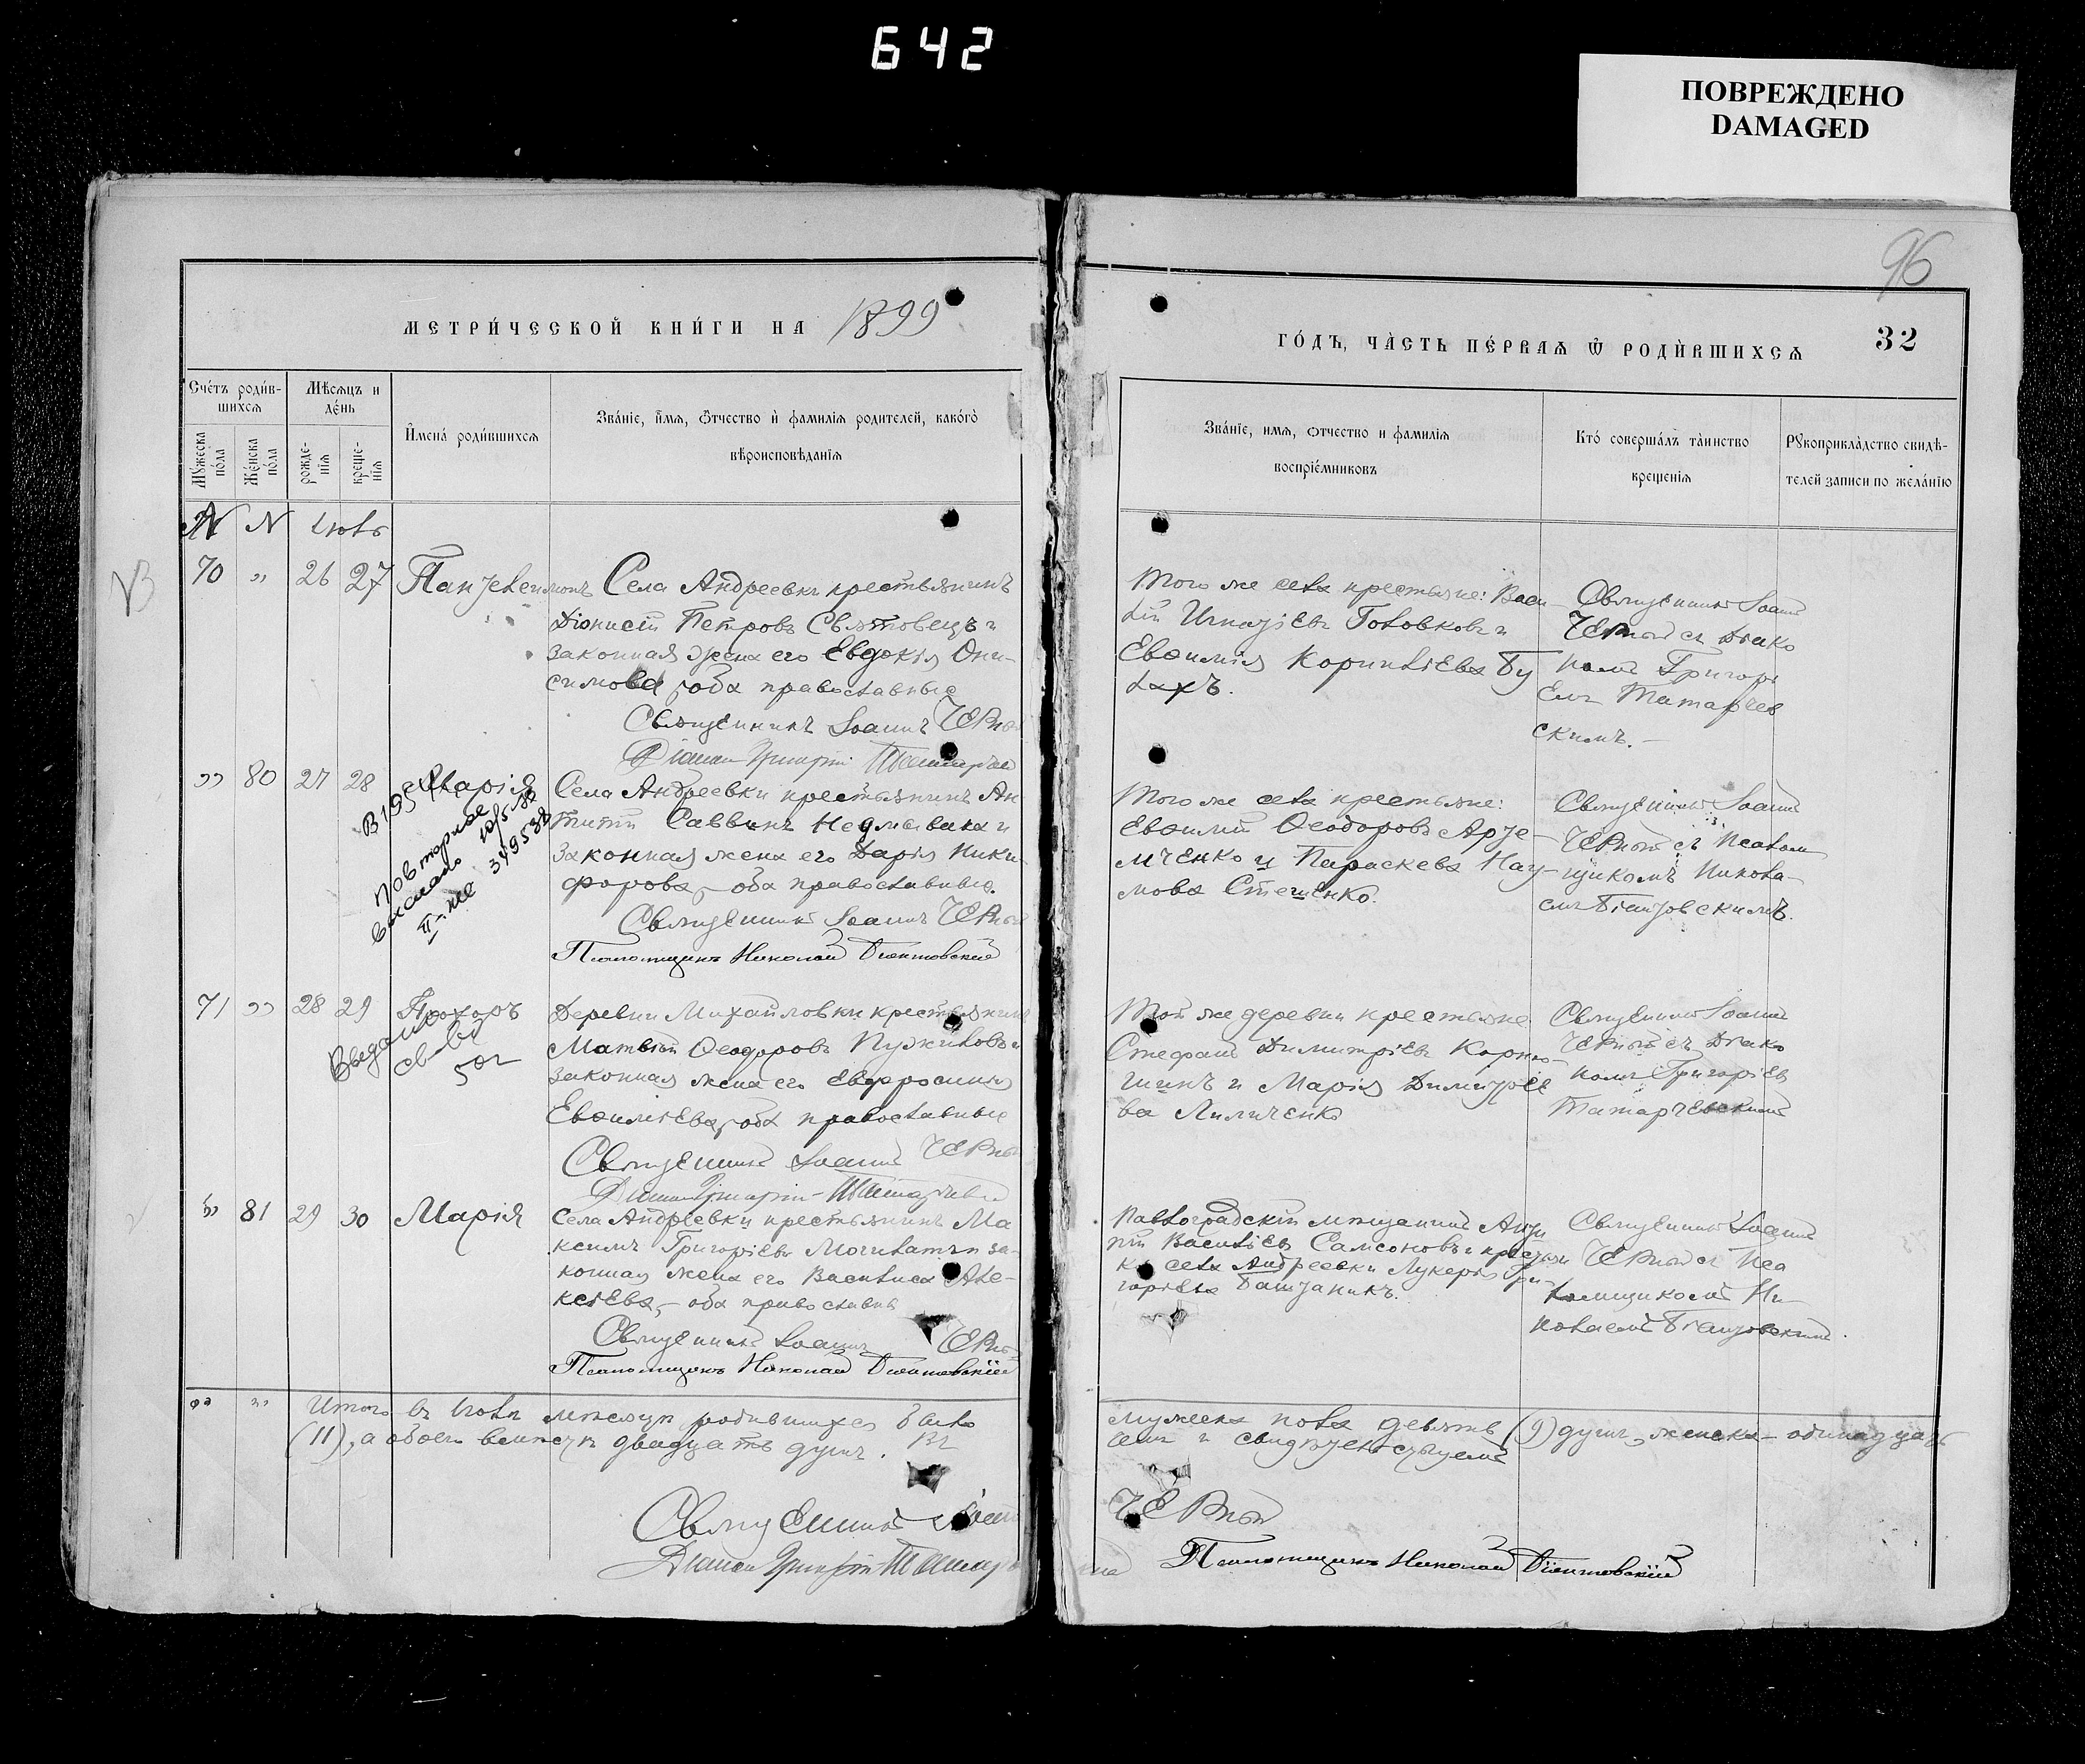 642
ПОВРЕЖДЕНО
DAMAGED
96
МЕТРИ́ЧЕСКОЙ КНИ́ГИ НА 1899
ГО́ДЪ, ЧА́СТЬ ПЕ́РВАЯ Ѿ РОДИ́ВШИХСЯ
32
Сче́тъ роди́в-
шихся
Мужеска по́ла
Же́нска по́ла
Мѣсяцъ и
де́нь
рожде-
нія
креще-
нія
И҆мена́ роди́вшихся
Зва́нїе, и҆́мя, ѻ҆́тчество и҆ фамилїя родителей, како́гѡ
вѣроисповѣданїя
Зва́нїе, имя, ѻтчество и фамилїя
воспрїе́мниковъ
Кто́ соверша́лъ та́инство
крещенїя
Рукоприкла́дство свидѣ-
телей записи по жела́нїю
N N Іюль
70 " 26 27 Пантелеимонъ
Села Андреевки крестьянинъ
Діонисій Петровъ Святовецъ и
законная жена его Евдокія Они-
симова, оба православные
Священникъ Іоаннъ Черный
Діаконъ Григорій
Того же села крестьяне: Васи-
лій Игнатіевъ Головковъ и
Евѳимія Корниліева Бу
лахъ.
Священникъ Іоаннъ
Черный съ Діако
номъ Григорі
емъ Татарчев
скимъ.
" 80 27 28 Марія
В 195
повторное
выслано 10/5
II-же 349538
Села Андреевки крестьянинъ Ан
типій Саввинъ Недмывака и
законная жена его Дарія Ники-
форова, оба православные.
Священникъ Іоаннъ Черный
Псаломщикъ Николай
Того же села крестьяне:
Евѳимій Ѳеодоровъ Арте-
мченко и Параскева Нау-
мова Стешенко.
Священникъ Іоаннъ
Черный съ Псалом
щикомъ Никола-
емъ
71 " 28 29 Прохоръ
Выдано
св-во
50 г
Деревни Михайловки крестьянинъ
Матвѣй Ѳеодоровъ и
законная жена его Евфросинія
Евѳиміева, оба православные
Священникъ Іоаннъ Черный
Діаконъ Григорій
Той же деревни крестьяне
Стефанъ Димитріевъ
и Марія Димитріе
ва Лиличенко
Священникъ Іоаннъ
Черный съ Діако
номъ Григоріем
Татарчевскимъ
" 81 29 30 Марія
Села Андреевки крестьянинъ Ма
ксимъ Григоріевъ и за-
конная жена его Василиса Але-
ксіева, оба православные
Священникъ Іоаннъ Черный
Псаломщикъ Николай
Павлоградскій мѣщанинъ
Василіевъ Самсоновъ и крестьян
ка села Андреевки Лукерія Гри-
горіева
Священникъ Іоаннъ
Черный съ Пса
ломщикомъ Ни-
колаемъ
Итого въ Іюлѣ мѣсяцѣ родившихся было мужеска пола девять (9) душъ, женска - одинадцать
(11), а обоего вмѣстѣ двадцать душъ. Въ
чемъ и свидѣтельствуемъ
Священникъ Іоаннъ Черный
Діаконъ Григорій
Псаломщикъ Николай